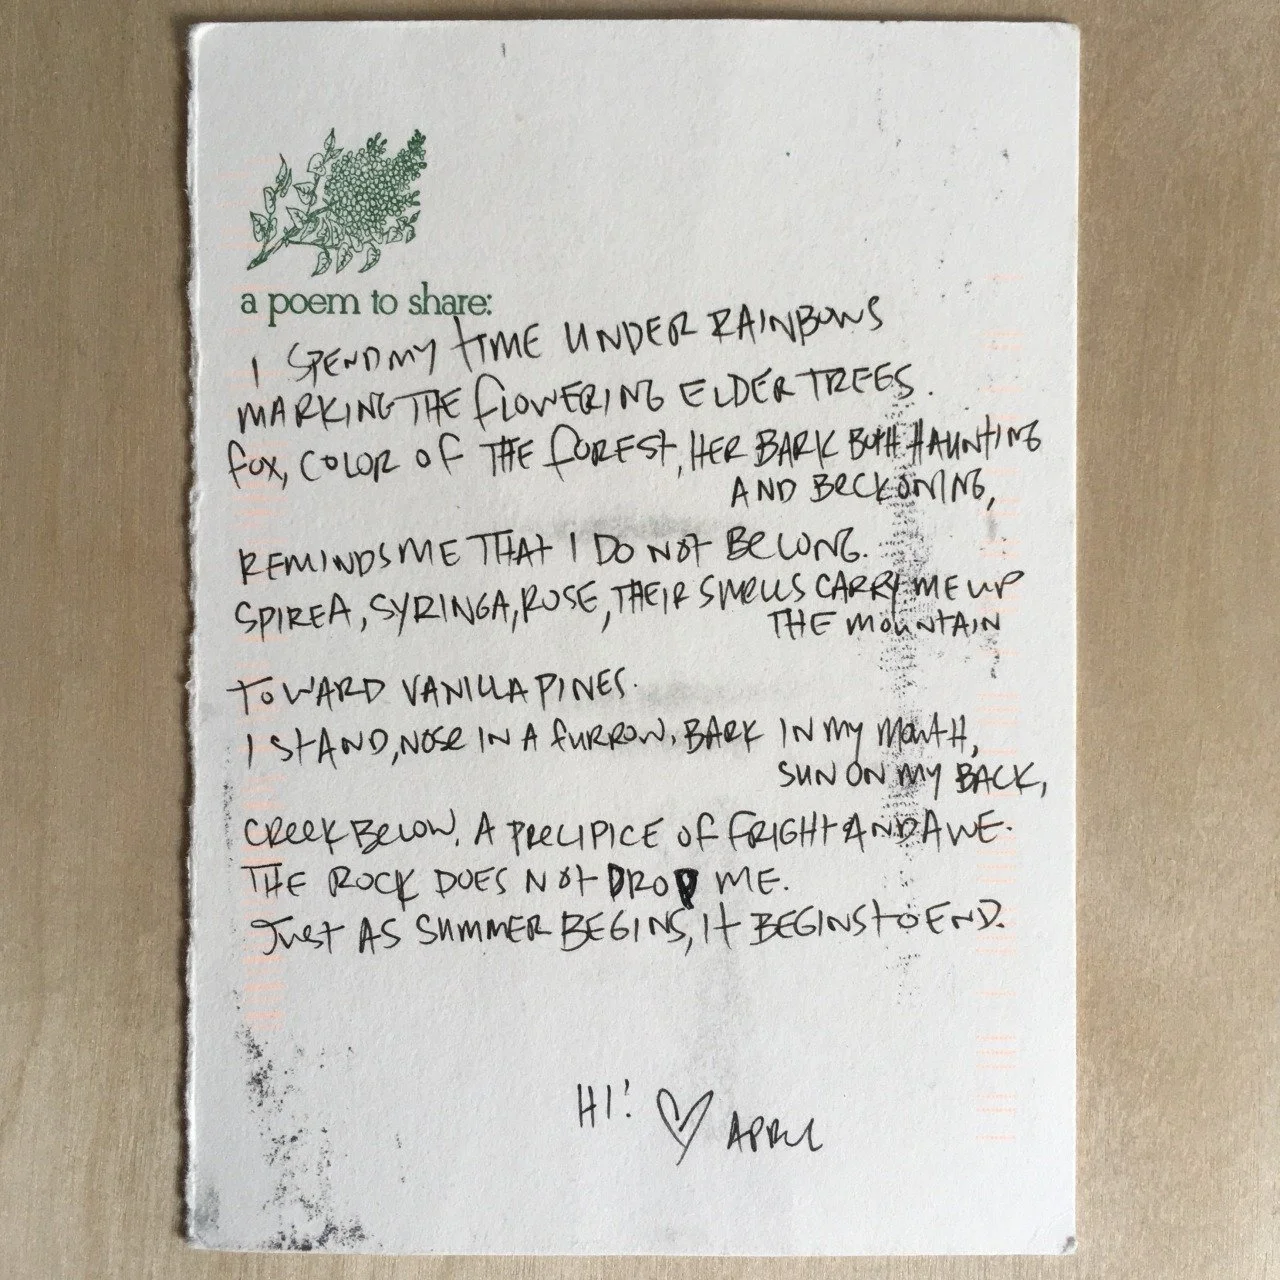 a poem to share:
I SPEND MY TIME UNDER RAINBOWS
MARKING THE FLOWERING ELDER TREES.
FOX, COLOR OF THE FOREST, HER BARK BOTH HAUNTING
AND BECKONING,
REMINDS ME THAT I DO NOT BELONG.
SPIREA, SYRINGA, ROSE, THEIR SMELLS CARRY ME UP
THE MOUNTAIN
TOWARD VANILLA PINES.
I STAND, NOSE IN A FURROW, BARK IN MY MOUTH,
SUN ON MY BACK,
CREEK BELOW. A PRECIPICE OF FRIGHT AND AWE.
THE ROCK DOES NOT DROP ME.
JUST AS SUMMER BEGINS, IT BEGINS TO END.
HI! ♡ APRIL